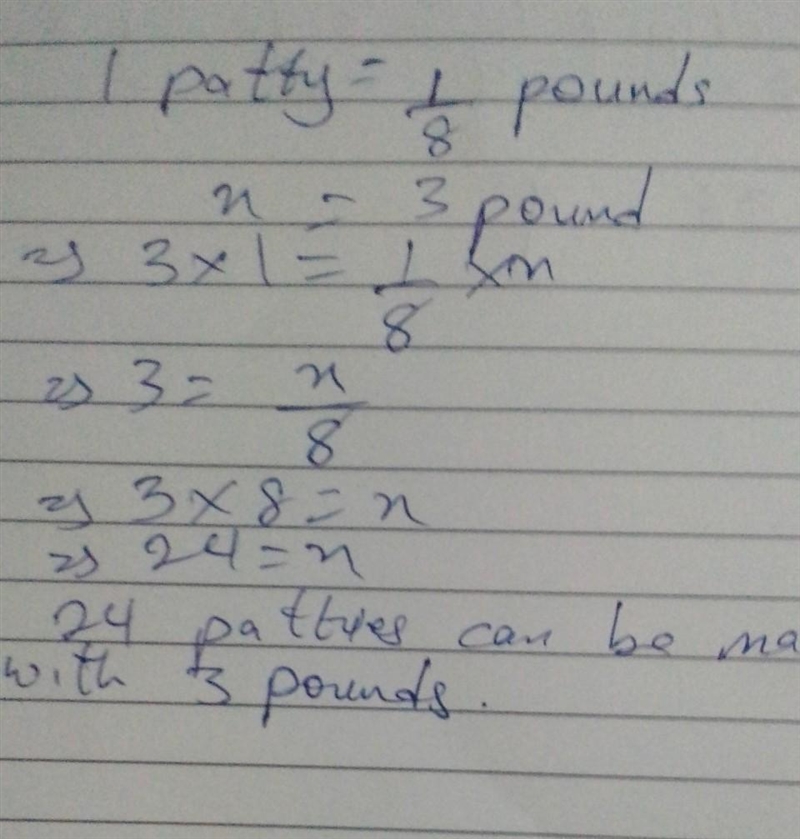 1 patty = 1/8 pounds
x = 3 pound
⇒ 3 × 1 = 1/8 × x
⇒ 3 = x/8
⇒ 3 × 8 = x
⇒ 24 = x
24 pattyies can be ma
with 3 pounds.